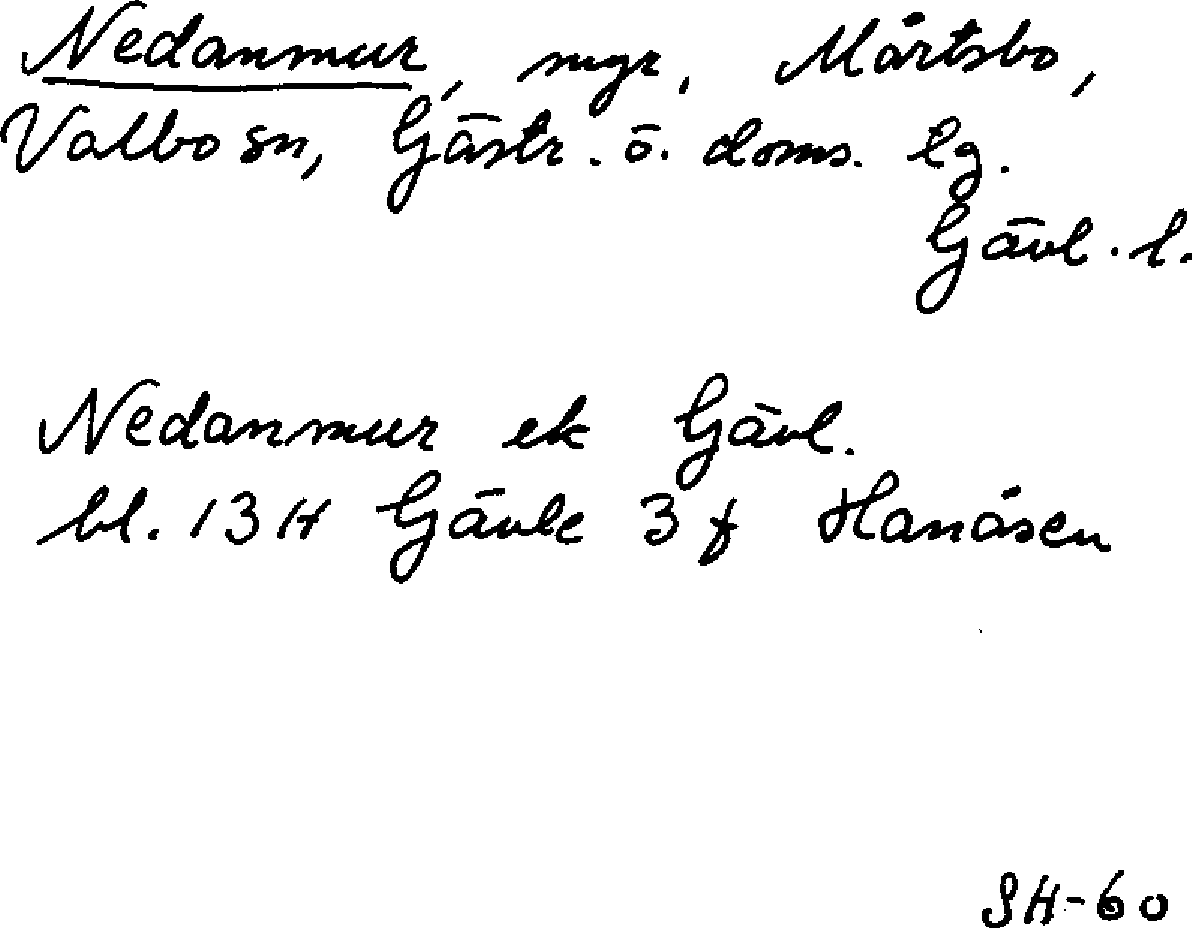 Nedanmur, myr, Mårtsbo,
Valbo sn, Gästr. ö. doms. lg.
Gävl. l.
Nedanmur ek Gävl.
bl. 13H Gävle 3f Hanåsen
SH-60